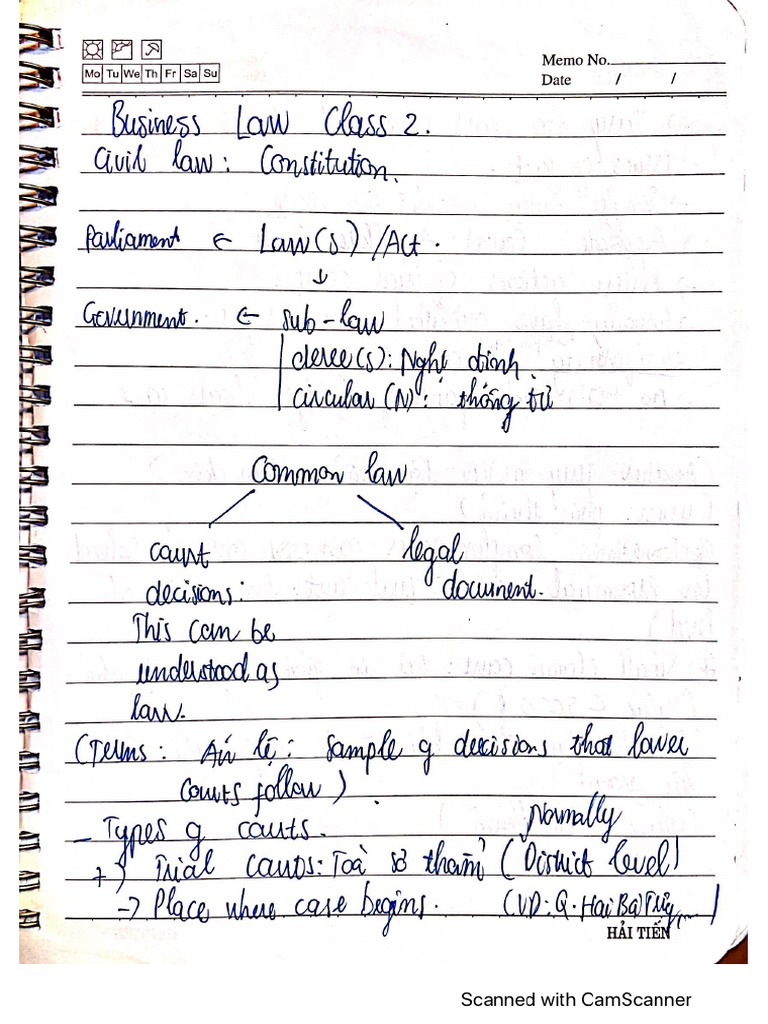 Mo Tu We Th Fr Sa Su
Memo No.
Date / /
Business Law Class 2.
Civil law: Constitution.
Parliament ← Law(s) /Act.
↓
Government. ← sub-law
decree(s): Nghị định.
circular (N): thông tư
Common law
court legal
decisions: document.
This can be
understood as
law.
(Terms: Án lệ: Sample of decisions that lower
courts follow)
- Types of courts. Normally
+) Trial courts: Toà sơ thẩm (District level)
→ Place where case begins. (VD: Q. Hai Bà Trưng,...)
HẢI TIẾN
Scanned with CamScanner